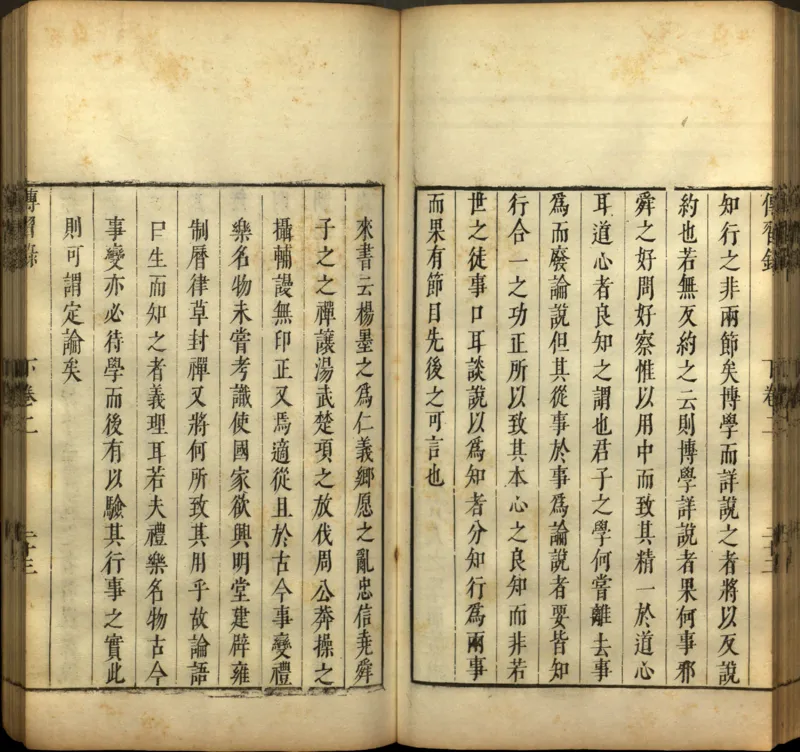 傳習錄
下卷二
二十三
知行之非兩節矣博學而詳說之者將以反說
約也若無反約之云則博學詳說者果何事邪
舜之好問好察惟以用中而致其精一於道心
耳道心者良知之謂也君子之學何嘗離去事
爲而廢論說但其從事於事爲論說者要皆知
行合一之功正所以致其本心之良知而非若
世之徒事口耳談說以爲知者分知行爲兩事
而果有節目先後之可言也
來書云楊墨之爲仁義鄉愿之亂忠信堯舜
子之之禪讓湯武楚項之放伐周公莽操之
攝輔謾無印正又焉適從且於古今事變禮
樂名物未嘗考識使國家欲興明堂建辟雍
制曆律草封禪又將何所致其用乎故論語
曰生而知之者義理耳若夫禮樂名物古今
事變亦必待學而後有以驗其行事之實此
則可謂定論矣
傳習錄
下卷二
二十三